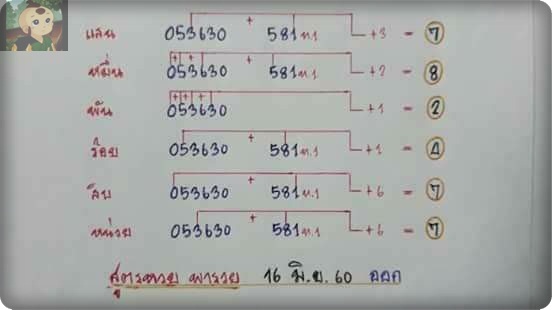 แสน 053630 + 581 ท.1 +3 = 7
หมื่น 053630 + + + 581 ท.1 +2 = 8
พัน 053630 + + + + +1 = 2
ร้อย 053630 + 581 ท.1 +1 = 4
สิบ 053630 + 581 ท.1 +6 = 7
หน่วย 053630 + 581 ท.1 +6 = 7
สูตรหวย พารวย 16 มิ.ย. 60 ออก